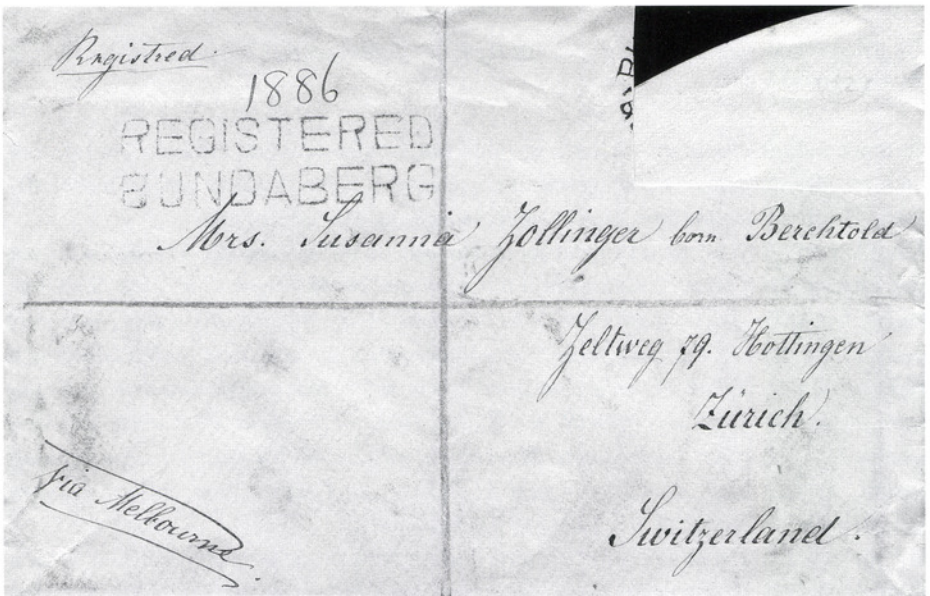 Registred.
1886
REGISTERED
BUNDABERG
Mrs. Susanna Zollinger born Berchtold
Zeltweg 79. Hottingen
Zürich.
via Melbourne.
Switzerland.